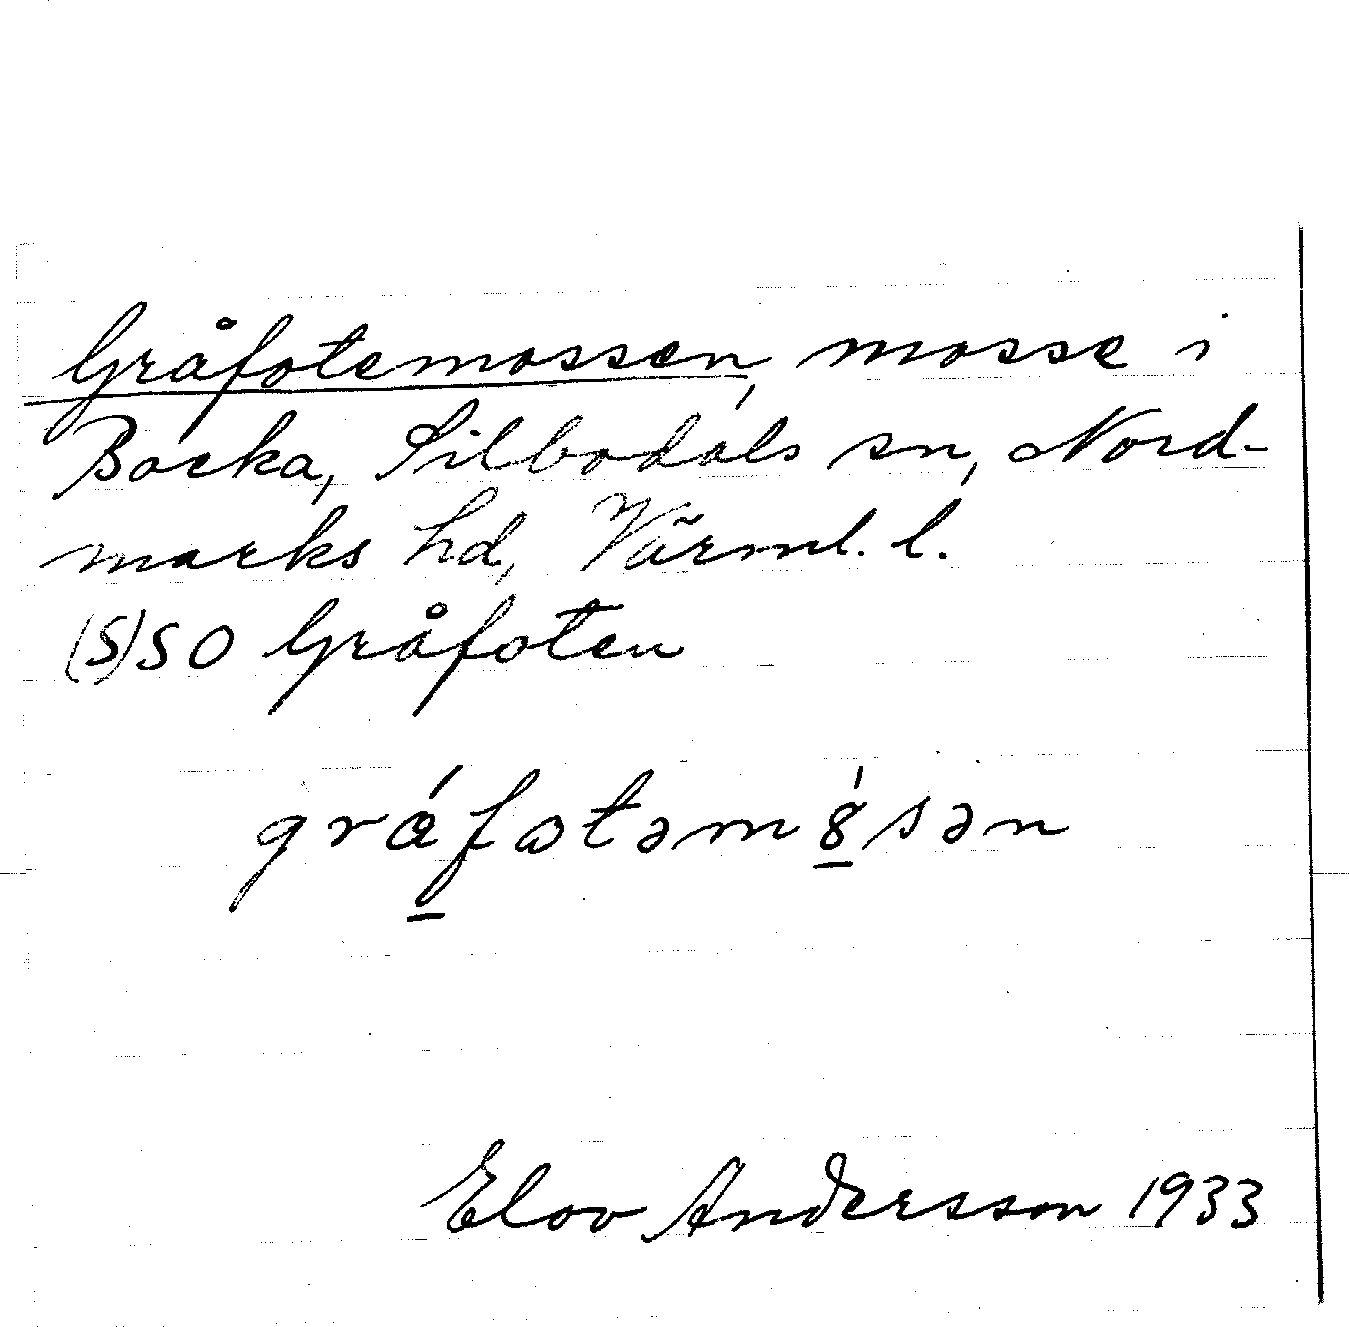 Gråfotemossen, mosse i
Backa, Silbodals sn, Nord-
marks hd, Värml. l.
(S)SO Gråfoten
Elov Andersson 1933